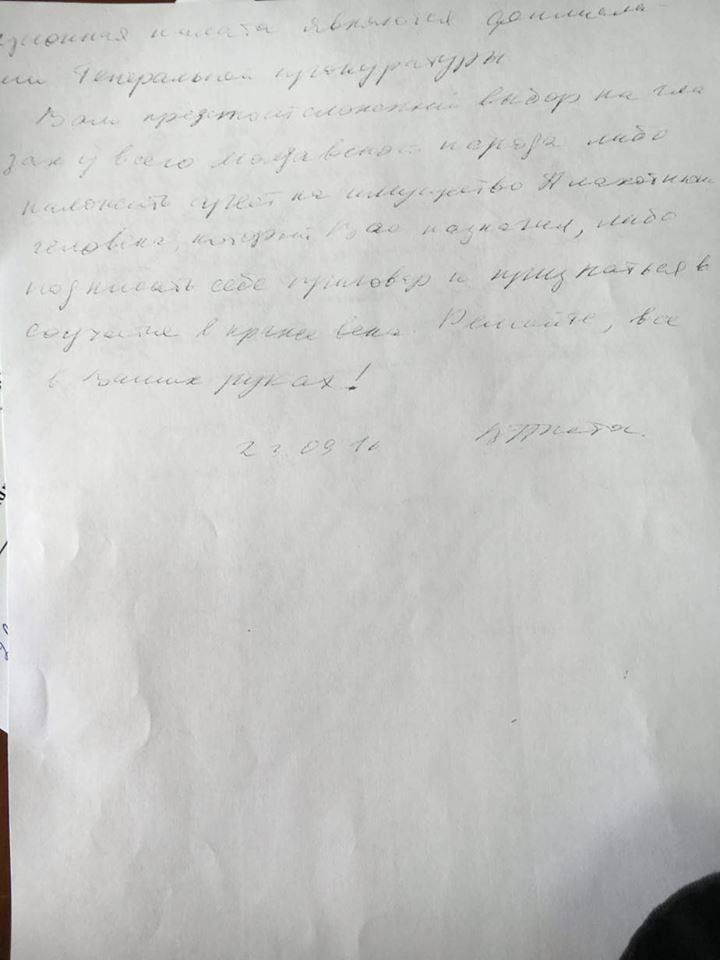 ционная палата являются филиала-
ми Генеральной прокуратуры.
Вам предстоит сложный выбор на гла
зах у всего молдавского народа либо
наложить арест на имущество Плахотнюка
человека, который Вас назначил, либо
подписать себе приговор и признаться в
соучастии в краже века. Решайте, все
в Ваших руках!
09 16